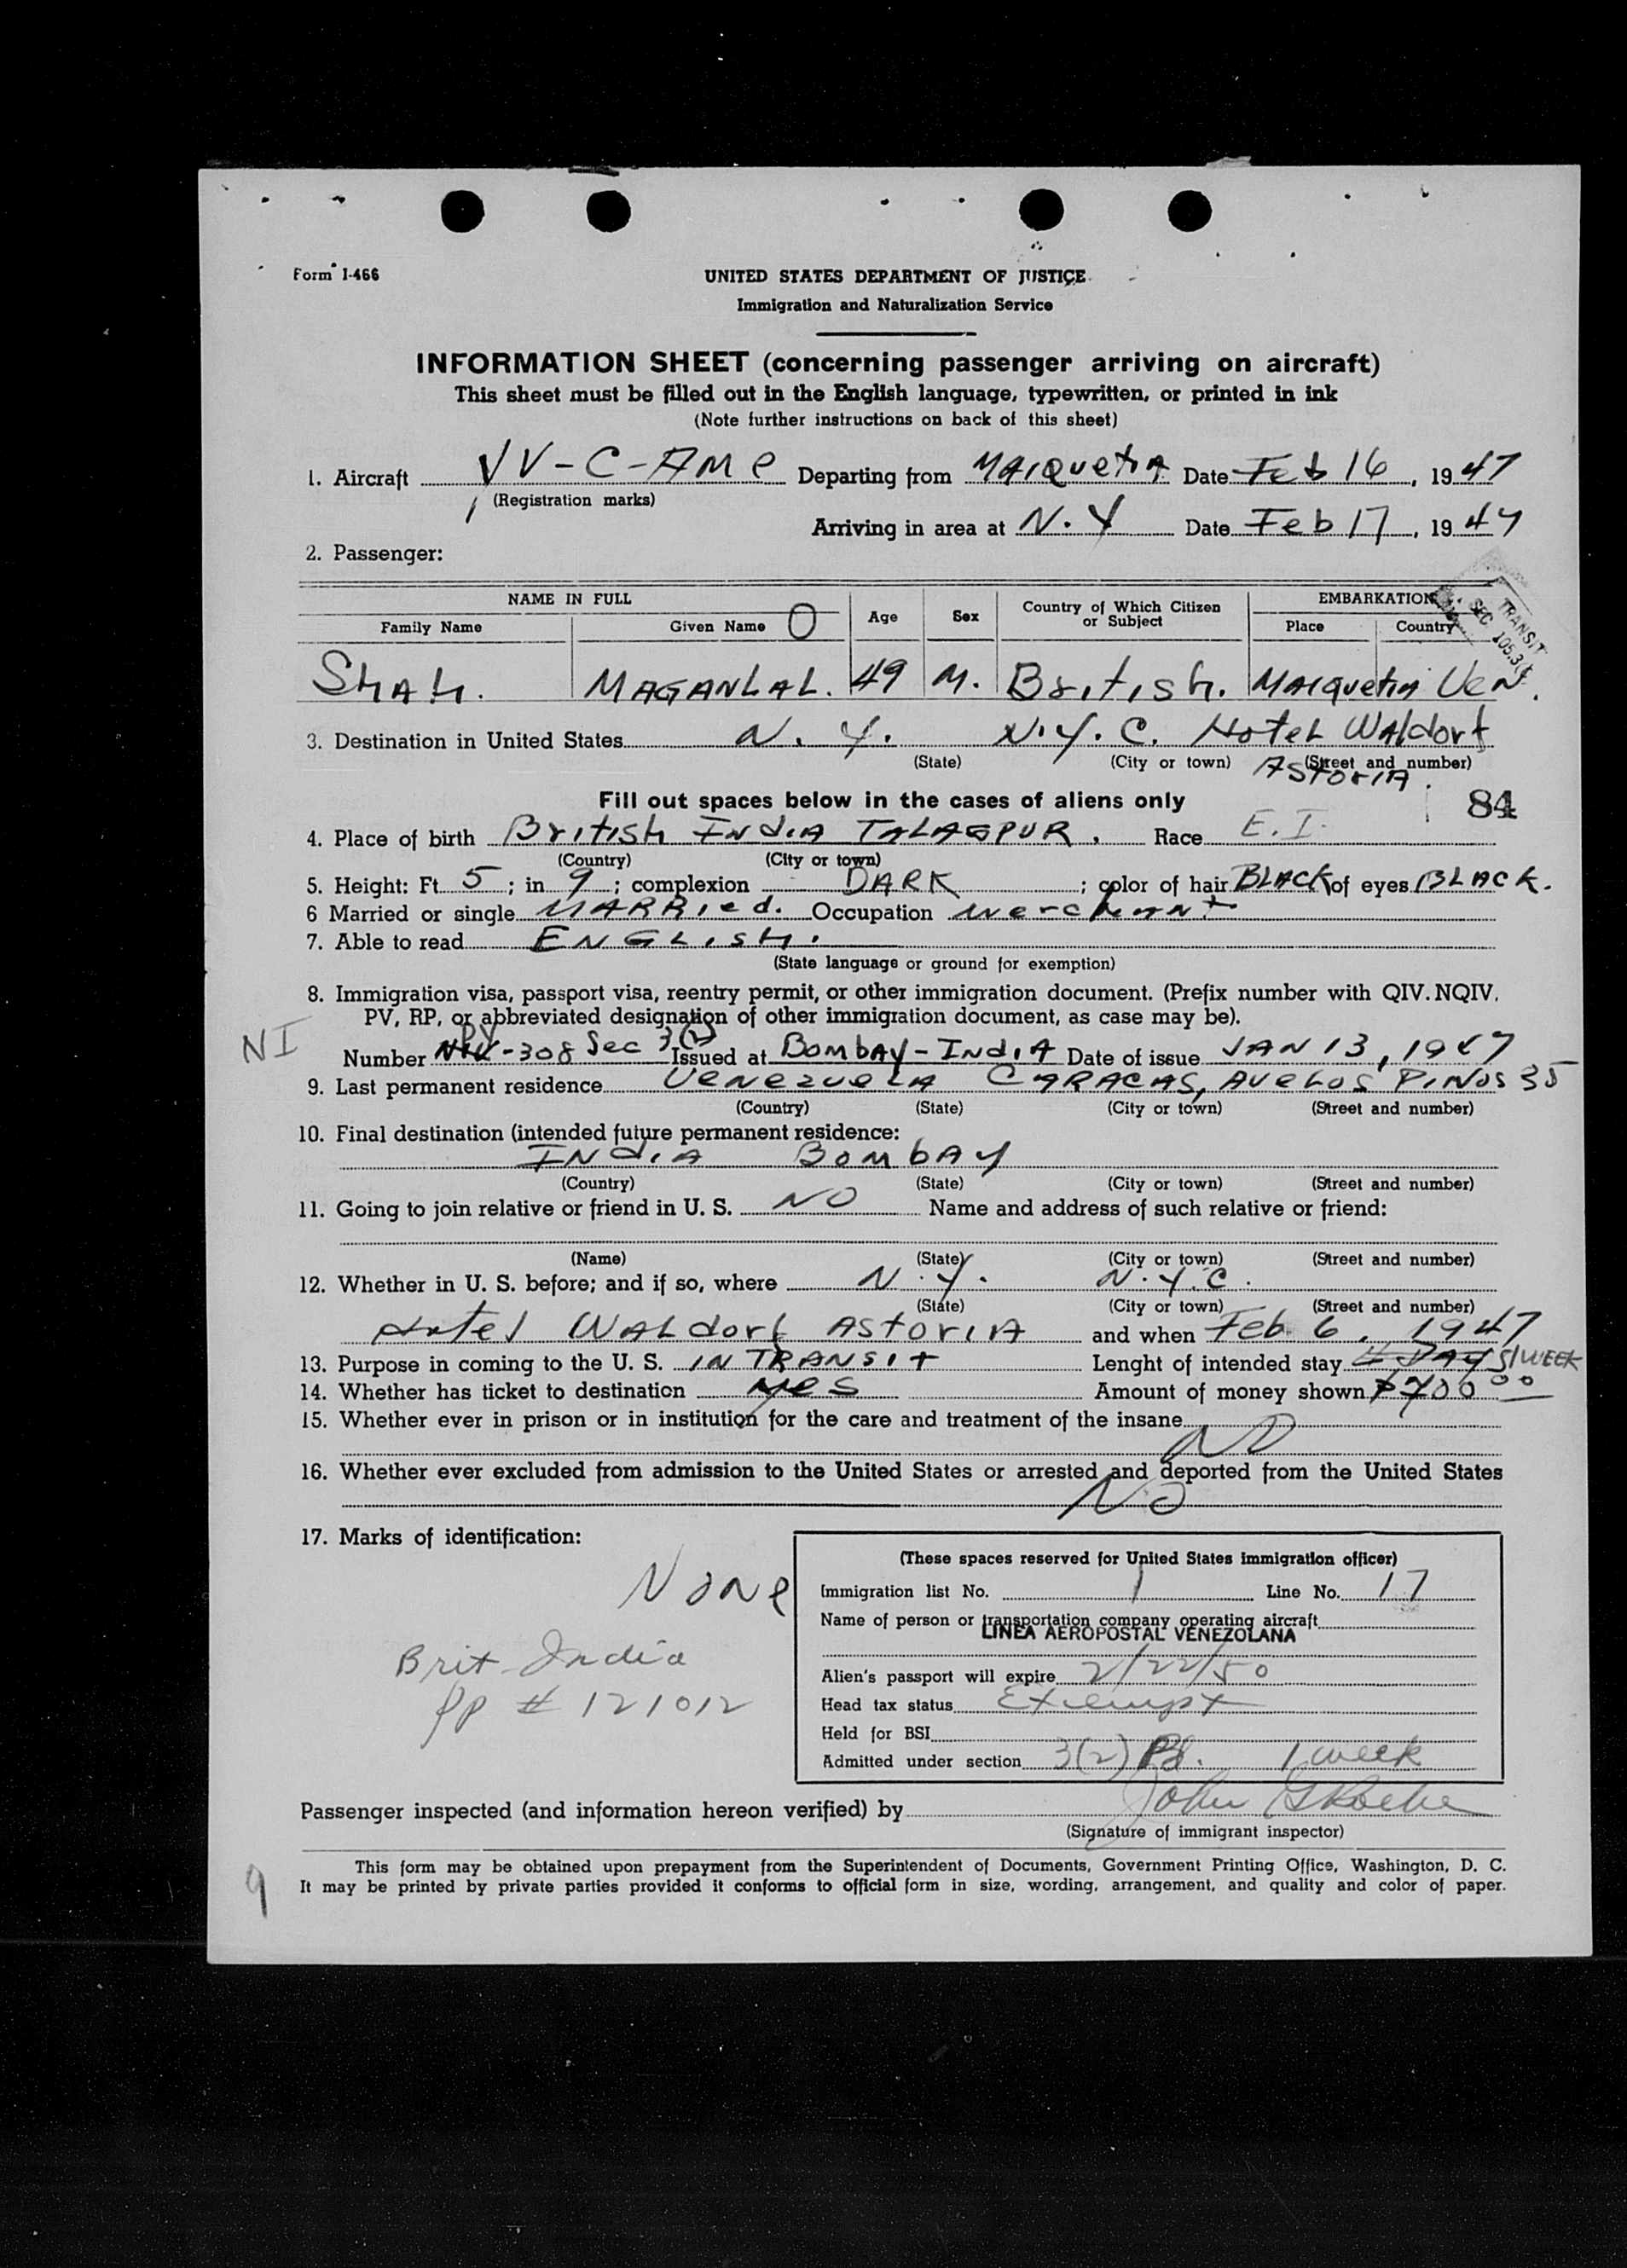 Form I-466
UNITED STATES DEPARTMENT OF JUSTICE
Immigration and Naturalization Service
INFORMATION SHEET (concerning passenger arriving on aircraft)
This sheet must be filled out in the English language, typewritten, or printed in ink
(Note further instructions on back of this sheet)
1. Aircraft YV-C-AME Departing from MAIQUETIA Date Feb 16, 1947
(Registration marks)
Arriving in area at N.Y Date Feb 17, 1947
2. Passenger:
NAME IN FULL EMBARKATION
Family Name Given Name O Age Sex Country of Which Citizen or Subject Place Country
TRANSIT
SEC 105.3(
SHAH. MAGANLAL. 49 M. British. Maiquetia Ven.
3. Destination in United States N.Y. N.Y.C. Hotel Waldorf
(State) (City or town) (Street and number)
ASTORIA.
Fill out spaces below in the cases of aliens only 84
4. Place of birth British INDIA , Race E.I.
(Country) (City or town)
5. Height: Ft. 5; in 9; complexion DARK; color of hair BLACK of eyes BLACK.
6 Married or single MARRIED. Occupation merchant
7. Able to read ENGLISH.
(State language or ground for exemption)
8. Immigration visa, passport visa, reentry permit, or other immigration document. (Prefix number with QIV. NQIV,
PV, RP, or abbreviated designation of other immigration document, as case may be).
NI Number PV-308 Sec 3(2) Issued at BOMBAY-INDIA Date of issue JAN 13, 1947
9. Last permanent residence VENEZUELA CARACAS, AVE LOS PINOS 35
(Country) (State) (City or town) (Street and number)
10. Final destination (intended future permanent residence:
INDIA BOMBAY
(Country) (State) (City or town) (Street and number)
11. Going to join relative or friend in U. S. NO Name and address of such relative or friend:
(Name) (State) (City or town) (Street and number)
12. Whether in U. S. before; and if so, where N.Y. N.Y.C.
(State) (City or town) (Street and number)
Hotel WALdorf ASTORIA and when Feb. 6, 1947
13. Purpose in coming to the U. S. IN TRANSIT Lenght of intended stay 4 DAYS 1 WEEK
14. Whether has ticket to destination yes Amount of money shown $700.00
15. Whether ever in prison or in institution for the care and treatment of the insane
NO
16. Whether ever excluded from admission to the United States or arrested and deported from the United States
NO
17. Marks of identification:
None
Brit India
pp # 121012
(These spaces reserved for United States immigration officer)
Immigration list No. 1 Line No. 17
Name of person or transportation company operating aircraft
LINEA AEROPOSTAL VENEZOLANA
Alien's passport will expire 2/22/50
Head tax status Exempt
Held for BSI
Admitted under section 3(2) 1 week
Passenger inspected (and information hereon verified) by John
(Signature of immigrant inspector)
This form may be obtained upon prepayment from the Superintendent of Documents, Government Printing Office, Washington, D. C.
It may be printed by private parties provided it conforms to official form in size, wording, arrangement, and quality and color of paper.
9